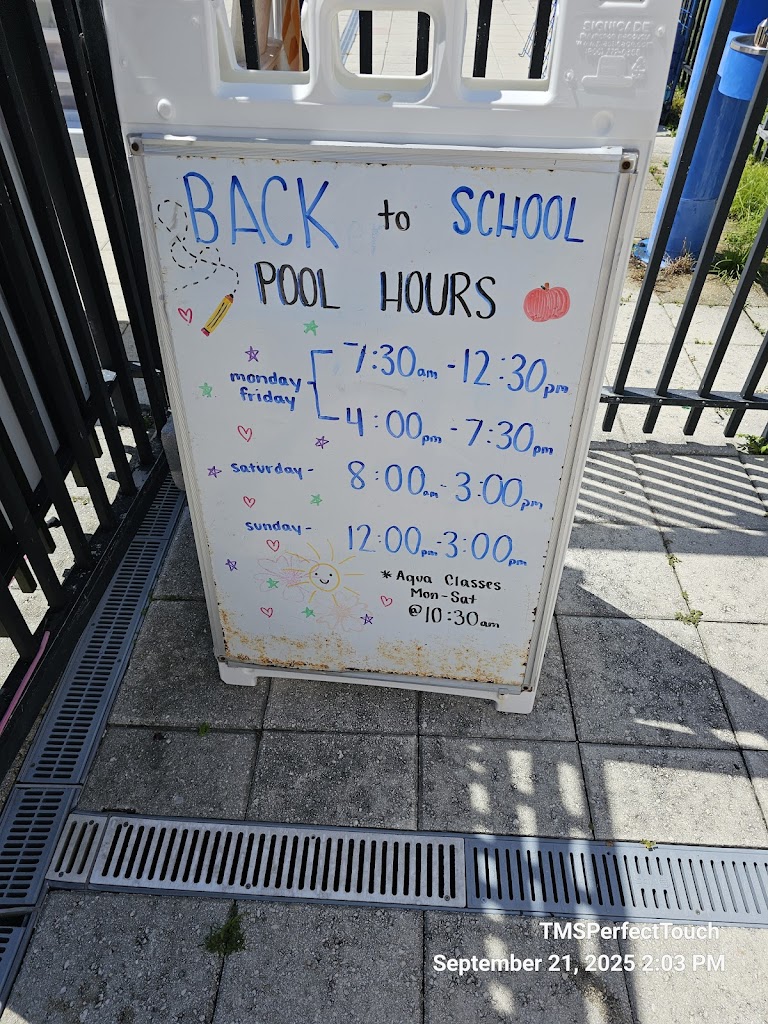 SIGNICADE
BACK to SCHOOL
POOL HOURS
monday friday
7:30am - 12:30pm
4:00pm - 7:30pm
saturday - 8:00am - 3:00pm
sunday - 12:00pm - 3:00pm
* Aqua Classes
Mon - Sat
@ 10:30am
TMSPerfectTouch
September 21, 2025 2:03 PM